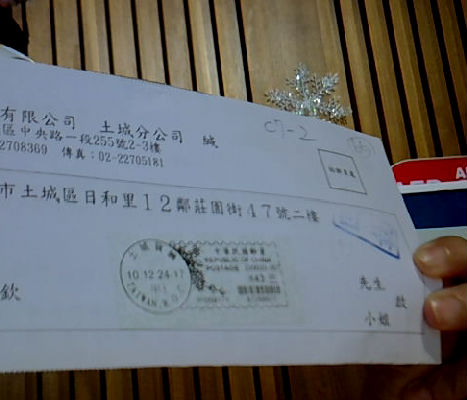 有限公司 土城分公司 緘
區中央路一段255號2-3樓
2708369 傳真:02-22705181
C7-2
市土城區日和里12鄰莊園街47號二樓
10.12.24-17
TAIWAN R.O.C.
中華民國郵票
REPUBLIC OF CHINA
POSTAGE
先生
啟
小姐
欽